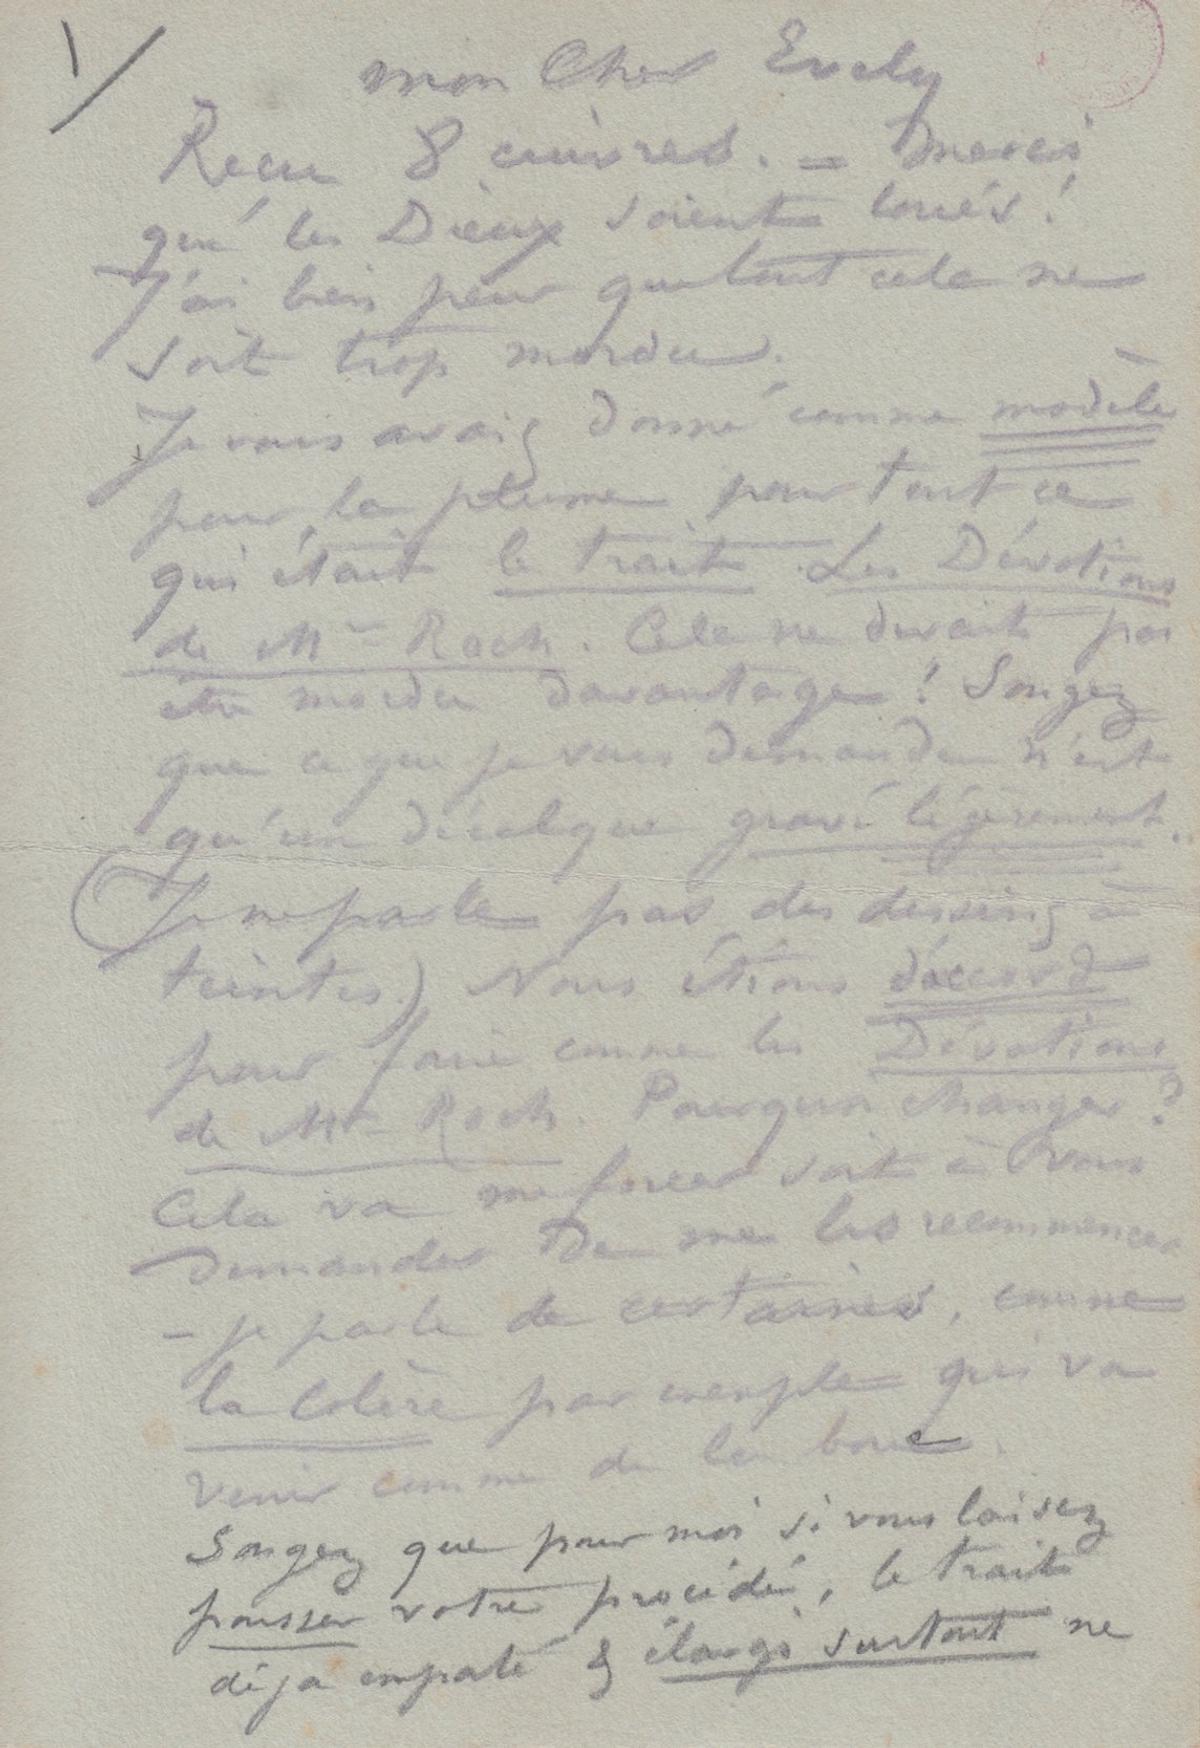 1/
mon Cher Evely
Recu 8 cuivres. = Merci
que les Dieux soient loués!
J'ai bien peur que tout cela ne
soit trop mordu.
Je vous avais donné comme modèle
pour la plume pour tout ce
qui était le trait. Les Dévotions
de Mme Roch. Cela ne devait pas
être mordu davantage! Songez
que ce que je vous demande n'est
qu'un décalque gravé légèrement..
(Je ne parle pas des dessins à
teintes.) Nous étions d'accord
pour faire comme les Dévotions
de Mme Roch. Pourquoi changer?
Cela va me forcer soit à vous
demander de me les recommencer
- je parle de certaines, comme
la Colère par exemple qui va
venir comme de la boue.
Songez que pour moi si vous laisez
pousser votre procédé, le trait
déjà empaté & élargi surtout ne